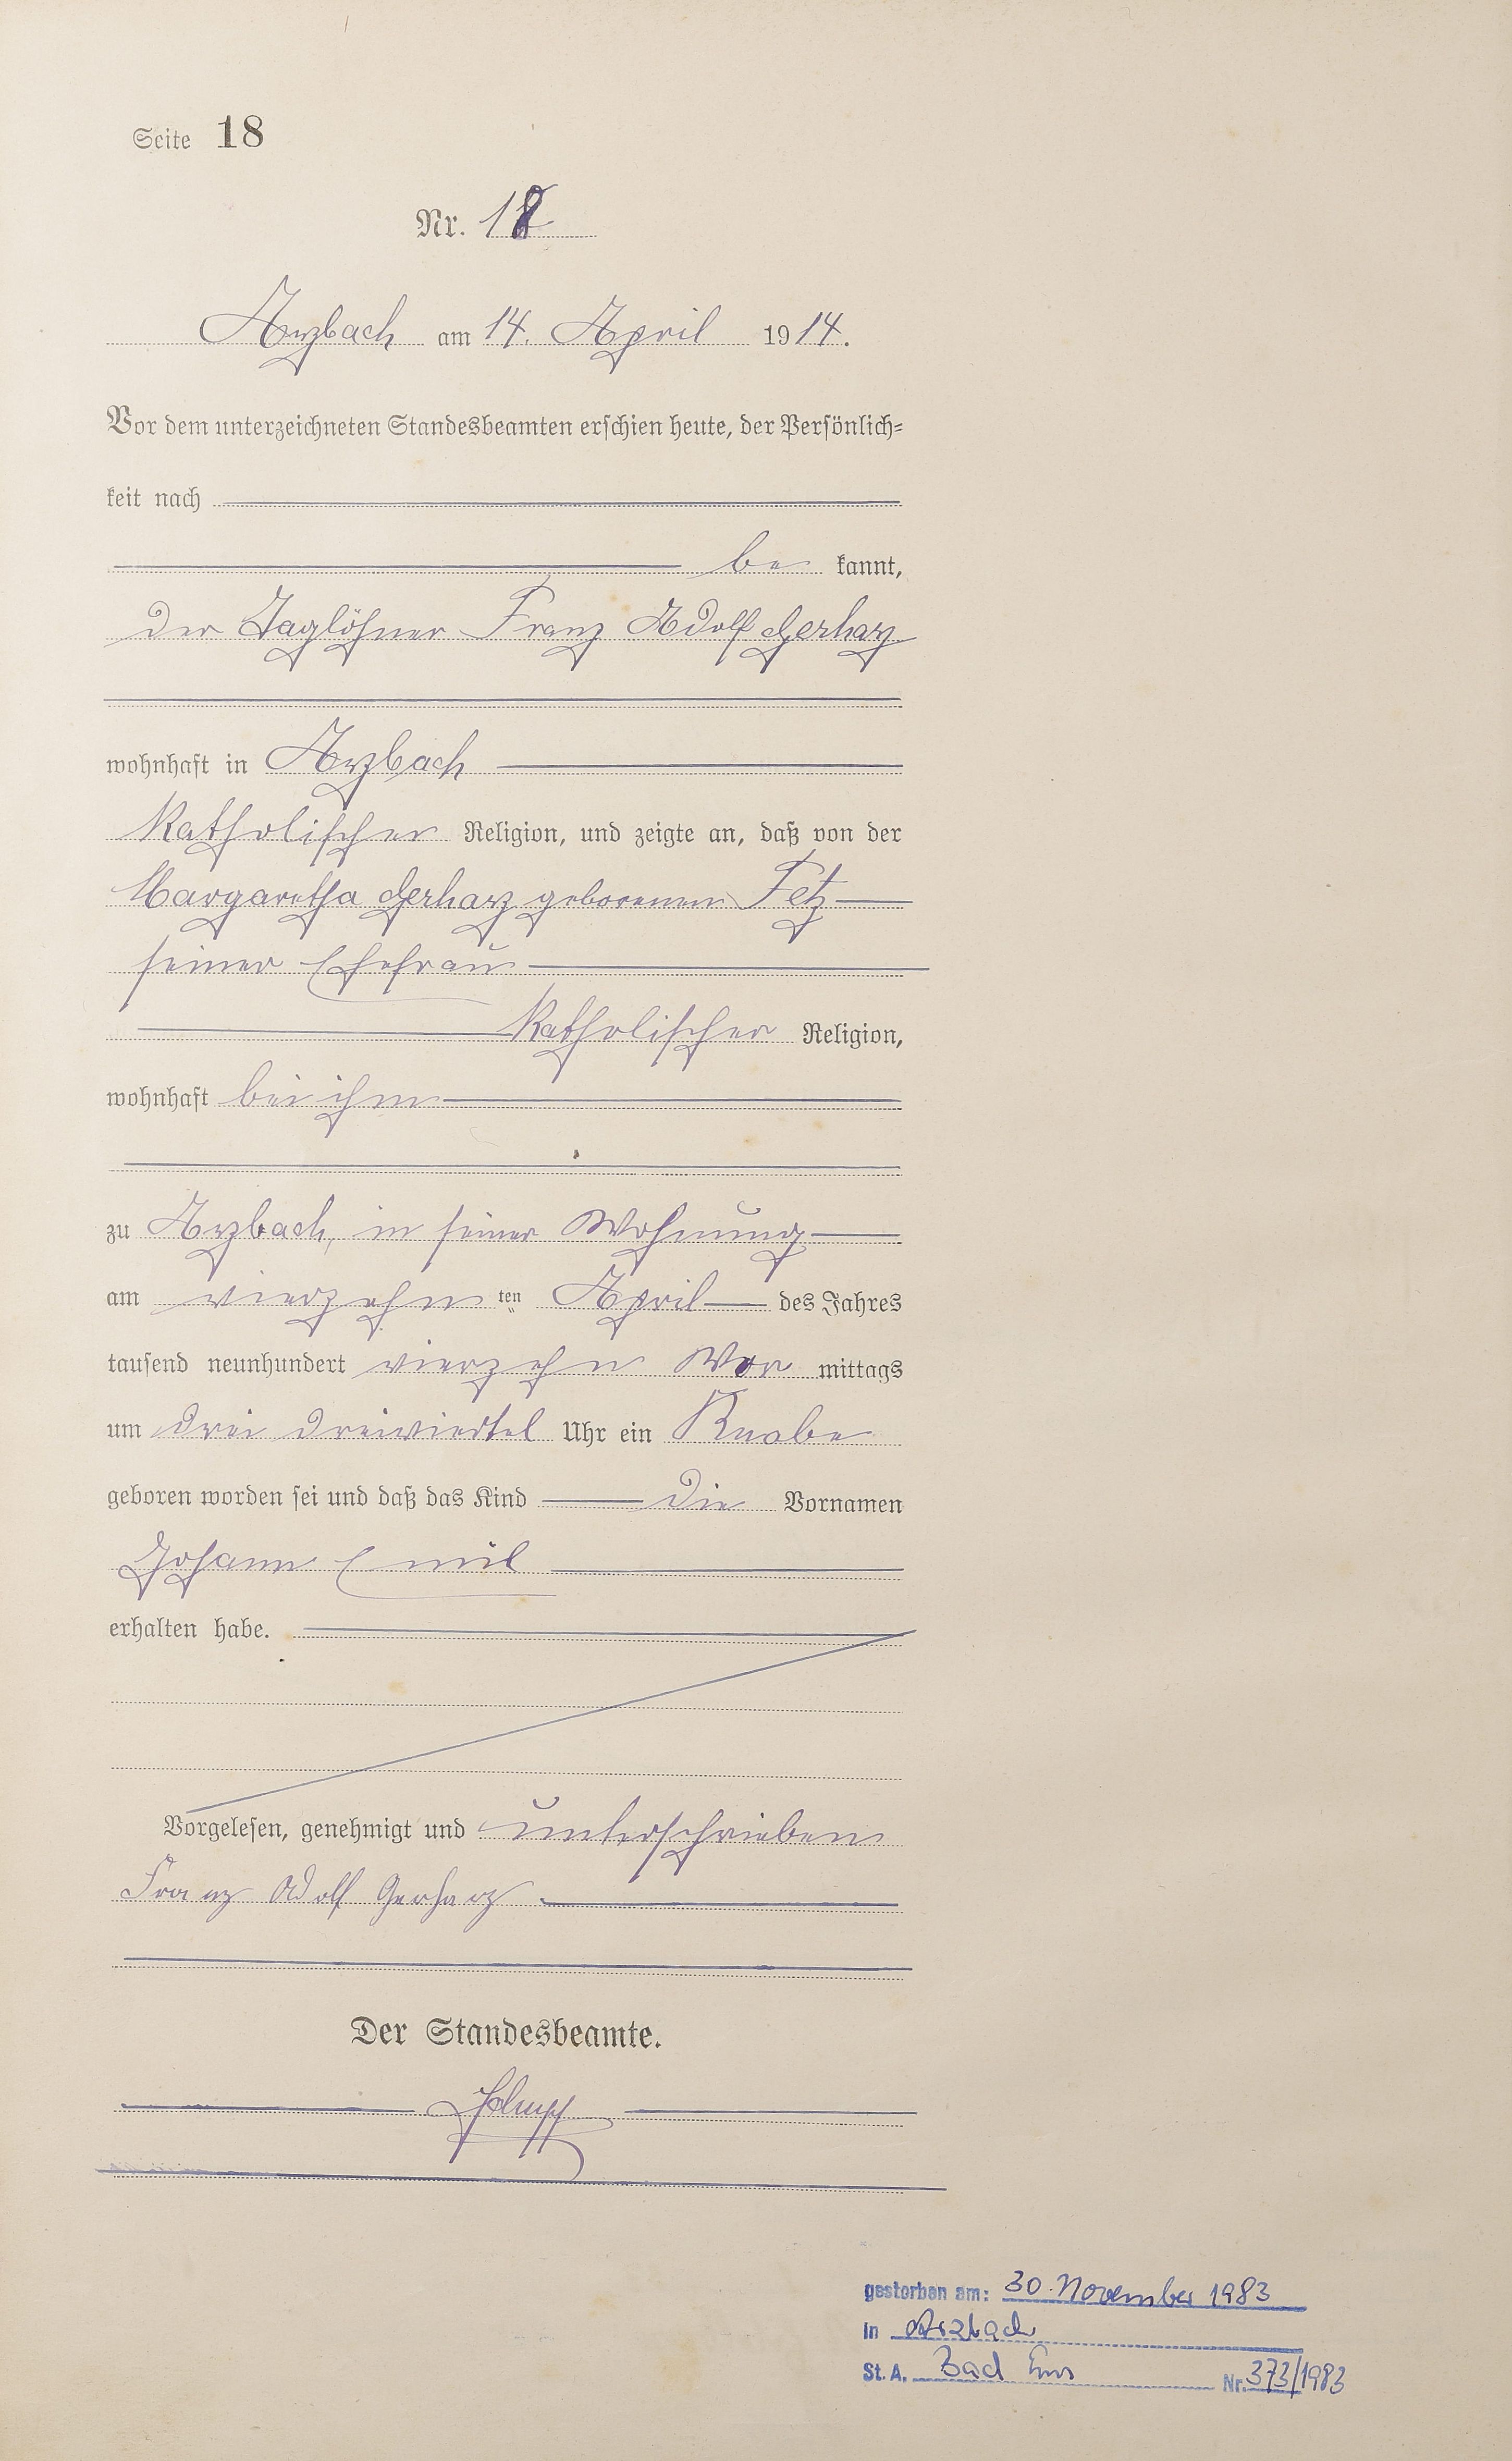 Seite 18
Nr. 18
Arzbach am 14. April 1914.
Vor dem unterzeichneten Standesbeamten erschien heute, der Persönlich-
keit nach
be kannt,
der Taglöhner Franz Adolf Gerharz
wohnhaft in Arzbach
katholischer Religion, und zeigte an, daß von der
Margaretha Gerharz geborenen Fetz
seiner Ehefrau
katholischer Religion,
wohnhaft bei ihm
zu Arzbach, in seiner Wohnung
am vierzehn ten April des Jahres
tausend neunhundert vierzehn Vor mittags
um drei dreiviertel Uhr ein Knabe
geboren worden sei und daß das Kind die Vornamen
Johann Emil
erhalten habe.
Vorgelesen, genehmigt und unterschrieben
Franz Adolf Gerharz
Der Standesbeamte.
gestorben am: 30. November 1983
in Arzbach
St. A. Bad Ems Nr. 373/1983